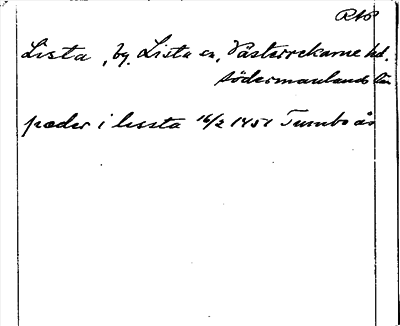 RAP
Lista, by. Lista sn, Västerrekarne hd.
Södermanlands län
pæder i lessta 16/2 1451 Tumbo ås